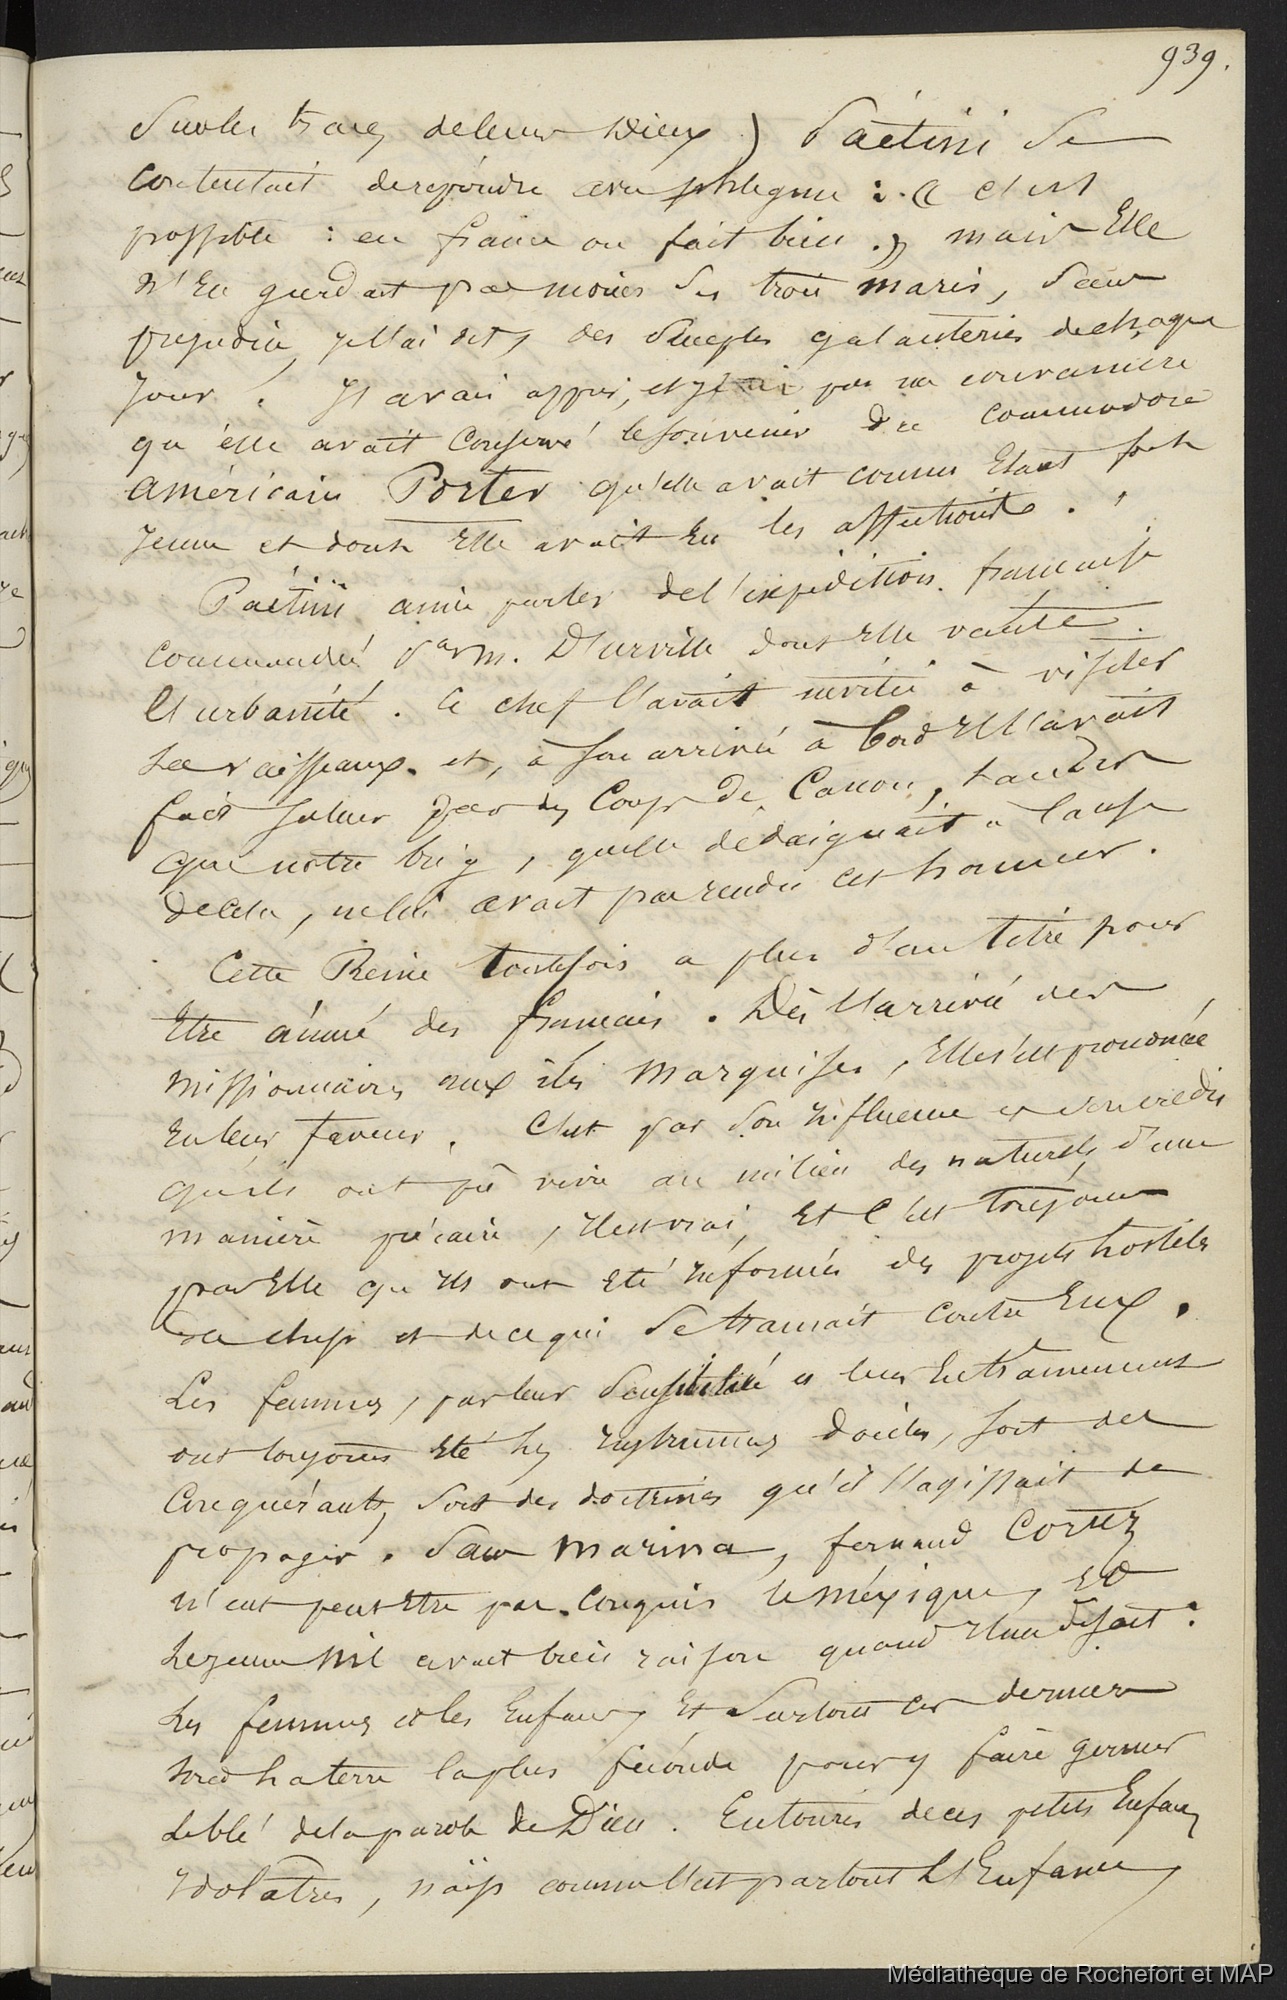 939.
Sur les traces de leurs Dieux ) Paétini se
contentait de repondre avec phlegme : « c'est
possible : en france on fait bien . » mais Elle
n'En gardait pas moins ses trois maris, sans
prejudice, Je l'ai dit, des Simples galanteries de chaque
Jour . J'avais appris, et
qu'elle avait Conservé le souvenir du commodore
américain Porter qu'elle avait connu Etant fort
Jeune et dont Elle avait Eu les affections .
Paétini aime parler de l'expédition française
commandée par m. D'urville dont Elle vante
l'urbanité . Ce chef l'avait invitée à visiter
Ses vaisseaux . et, à son arrivée à bord Il l'avait
fait saluer par des Coups de Canon, tandis
que notre brig, quelle dédaignait à cause
de cela, ne lui avait pas rendu cet honneur .
Cette Reine toutefois a plus d'un titre pour
Etre aimé des français . Dès l'arrivée des
missionnaires aux iles marquises, Elle s'est prononcée
En leur faveur . C'est par son Influence et son crédit
qu'ils ont pû vivre au milieu des naturels, d'une
manière précaire, Il est vrai, Et c'est toujours
par Elle qu'Ils ont Eté Informés des projets hostiles
des chefs et de ce qui se tramait contre Eux .
Les femmes, par leur Sensibilité et leur Entrainement
ont toujours Eté les Instrumens dociles, soit des
Conquérants, soit des doctrines qu'il s'agissait de
propager . Sans marina, fernand Cortez
n'eut peut Etre pas Conquis le méxique, Et
Le jeune Nil avait bien raison quand Il me disait :
Les femmes et les Enfans, Et Surtout ces derniers
sont la terre la plus féconde pour y faire germer
Le blé de la parole de Dieu . Entourés de ces petits Enfans
Idolâtres, naïfs comme l'est partout l'Enfance,
Médiathèque de Rochefort et MAP